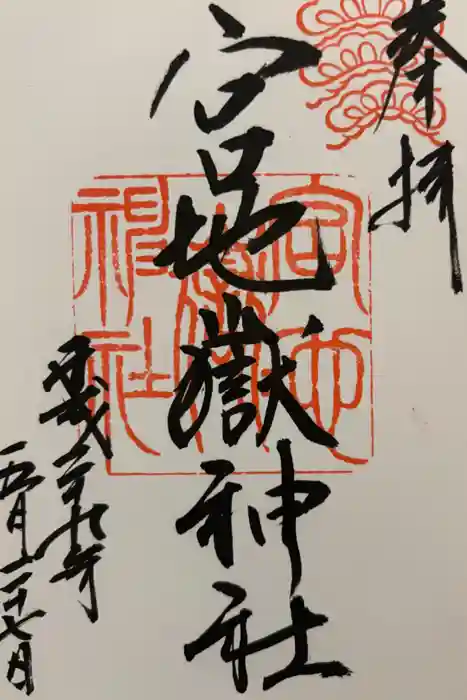 奉拝
宮地嶽神社
平成二十九年
五月二十七日
宮地嶽神社